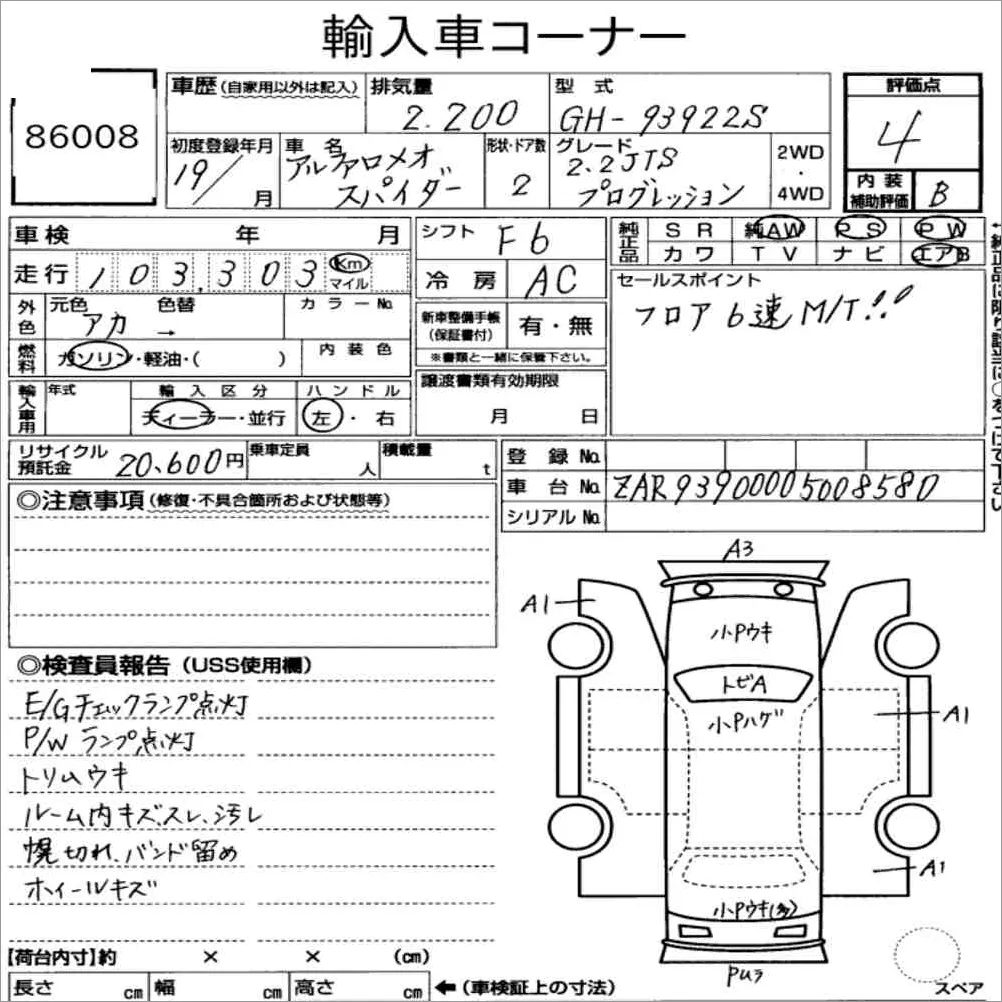 輸入車コーナー
86008
車歴(自家用以外は記入)
排気量
2.200
型 式
GH-93922S
評価点
4
内装補助評価
B
初度登録年月
19/ 月
車 名
アルファロメオ
スパイダー
形状・ドア数
2
グレード
2.2JTS
プログレッション
2WD
・
4WD
車検 年 月
走行 103,303 Km
マイル
シフト F6
冷 房 AC
純正品
SR 純AW PS PW
カワ TV ナビ エアB
セールスポイント
フロア6速M/T!!
外色
元色 色替 カラーNo.
アカ →
燃料
ガソリン・軽油・( )
内装色
新車整備手帳
(保証書付)
有・無
※書類と一緒に保管下さい。
輸入車用
年式
輸入区分
ディーラー・並行
ハンドル
左・右
譲渡書類有効期限
月 日
リサイクル
預託金
20,600円
乗車定員
人
積載量
t
登 録 No.
車 台 No. ZAR93900005008580
シリアル No.
◎注意事項(修復・不具合箇所および状態等)
◎検査員報告(USS使用欄)
E/Gチェックランプ点灯
P/W ランプ点灯
トリムウキ
ルーム内キズ、スレ、汚レ
幌切れ、バンド留め
ホイールキズ
A3
A1
小Pウキ
トビA
小Pハゲ
A1
A1
小Pウキ(多)
PUラ
スペア
【荷台内寸】約 × × (cm)
長さ cm 幅 cm 高さ cm ←(車検証上の寸法)